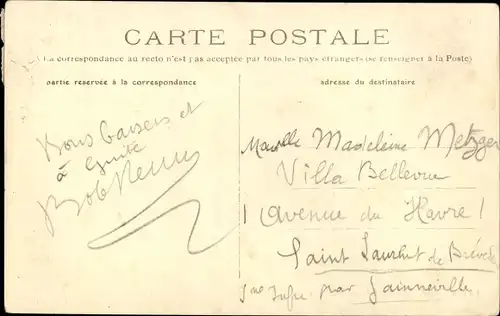 CARTE POSTALE
(La correspondance au recto n'est pas acceptée par tous les pays étrangers (se renseigner à la Poste)
partie réservée à la correspondance
adresse du destinataire
Bons baisers et
à
Bob
Madeleine Metzger
Villa Bellevue
Avenue du Havre
Saint Laurent de Brévedent
Sne Infre par Gainneville